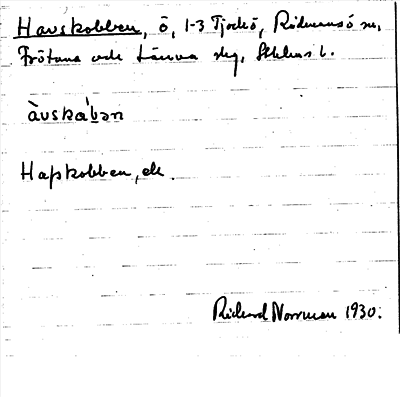 Havskobben, ö, 1-3 Tjockö, Rådmansö sn,
Frötuna och Länna slg, Sthlms l.
àvskábən
Hapskobben, ek.
Richard Norrman 1930.